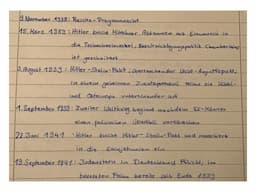 9. November 1938: Reichs-Pogromnacht
15. März 1939: Hitler bricht Münchner Abkommen mit Einmarsch in
die Tschechoslowakei, Beschwichtigungspolitik Chamberlains
ist gescheitert
3. August 1939: Hitler-Stalin-Pakt: überraschender Nichtangriffspakt
in einem geheimen Zusatzprotokoll teilen sie
Osteuropa untereinander auf
1. September 1939: Zweiter Weltkrieg beginnt nachdem SS-Männer
einen polnischen Überfall vortäuschen
22. Juni 1941: Hitler bricht Hitler-Stalin-Pakt und marschiert
in die Sowjetunion ein
19. September 1941: Judenstern in Deutschland Pflicht, im
besetzten Polen bereits seit Ende 1939